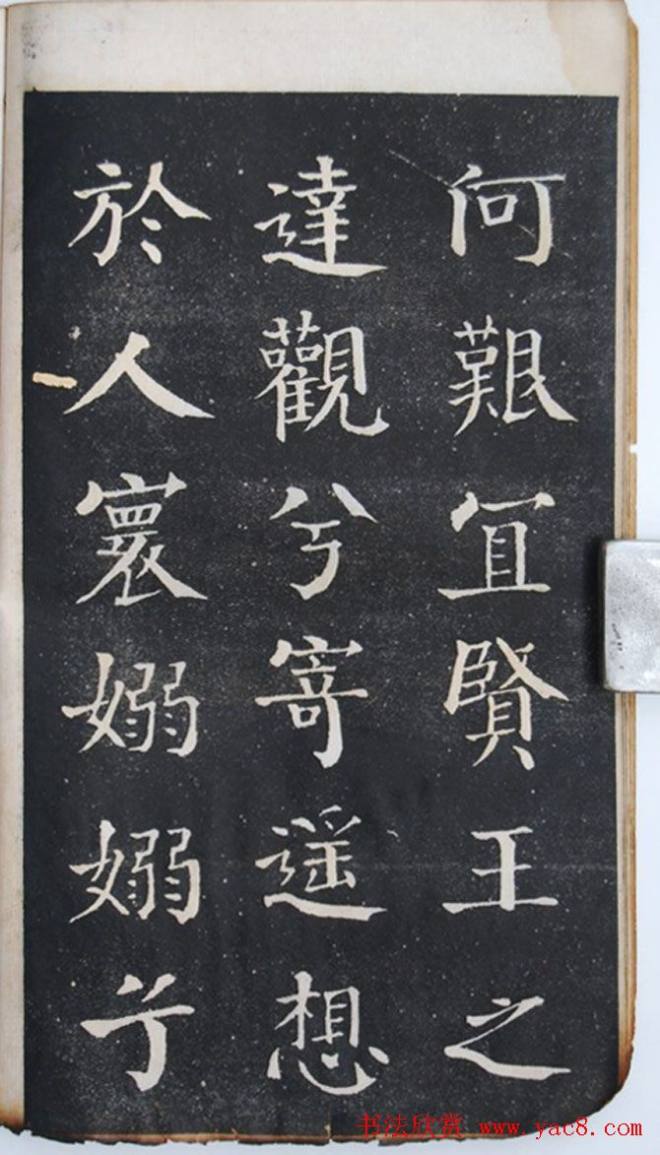 何艱宜賢王之
達觀兮寄遥想
於人寰嫋嫋兮
书法欣赏 www.yac8.com